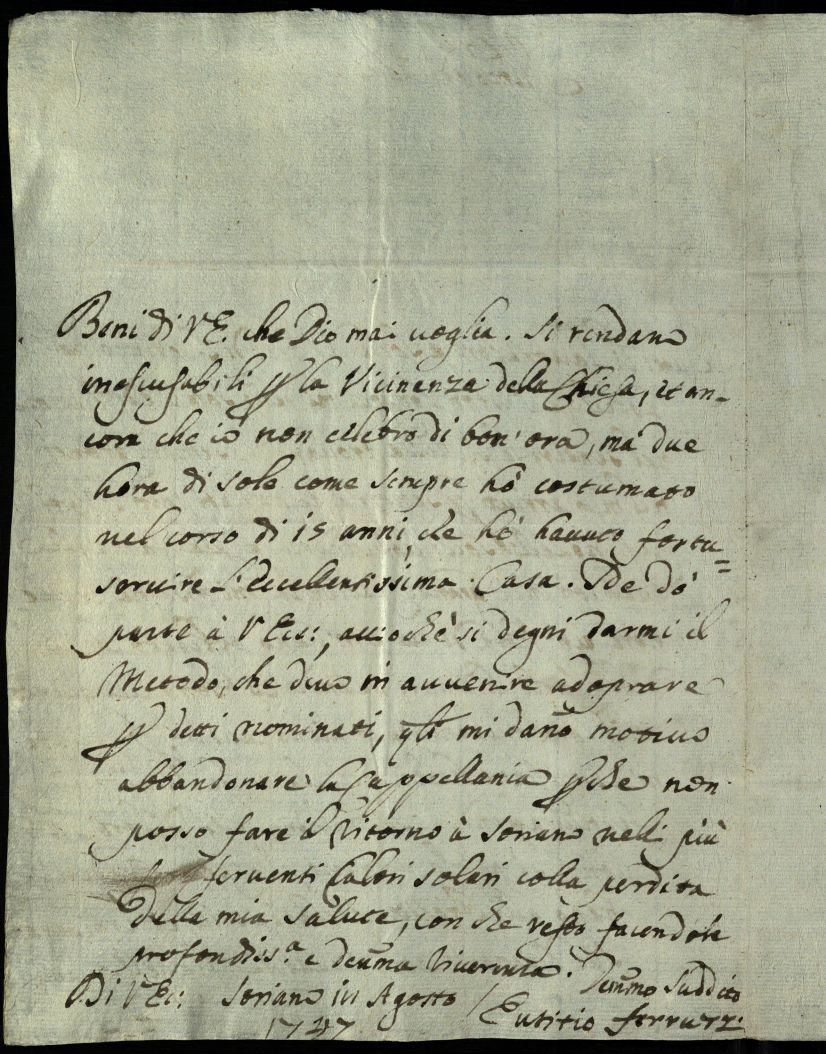 Beni di V E. che Dio mai voglia. Si rendano
inescusabili p la Vicinanza della Chiesa, et an-
cora che io non celebro di bon' ora, mà due
hora di sole come sempre hò costumato
nel corso di 15 anni, che hò havuto fortu=
servire L'Eccellentissima Casa. Ne dò
parte à V Ecc:, acciochè si degni darmi il
Metodo, che devo in avvenire adoprare
p detti nominati, qli mi dano motivo
abbandonare la Cappellania pche non
posso fare il ritorno à Soriano nelli più
ferventi Calori solari colla perdita
della mia salute, con che resto facendole
profondiss.a e devma riverenza.
Di V Ecc: Soriano Agosto / Devmo Suddito
1747 Eutitio Ferruzzi